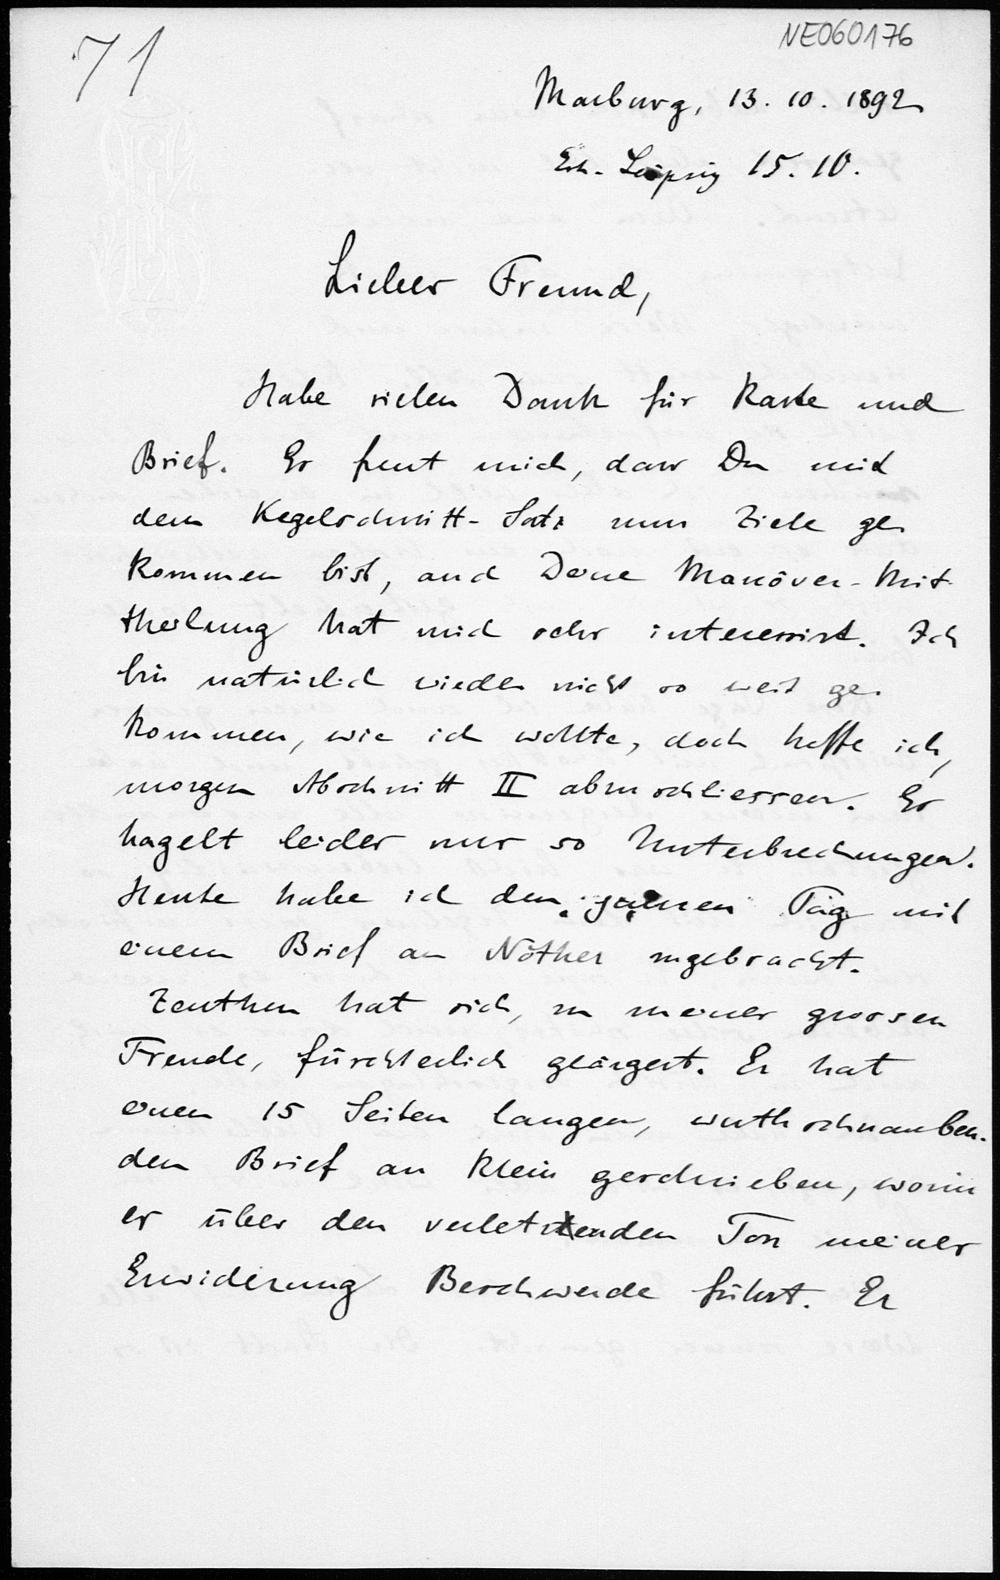 71
NE060176
Marburg, 13. 10. 1892
Erh. Leipzig 15. 10.
Lieber Freund,
Habe vielen Dank für Karte und
Brief. Es freut mich, dass Du mit
dem Kegelschnitt-Satz zum Ziele ge-
kommen bist, und Deine Manöver-Mit-
theilung hat mich sehr interessirt. Ich
bin natürlich wieder nicht so weit ge-
kommen, wie ich wollte, doch hoffe ich,
morgen Abschnitt II abzuschliessen. Es
hagelt leider nur so Unterbrechungen.
Heute habe ich den ganzen Tag mit
einem Brief an Nöther zugebracht.
Zeuthen hat sich, zu meiner grossen
Freude, fürchterlich geärgert. Er hat
einen 15 Seiten langen, wuthschnauben-
den Brief an Klein geschrieben, worin
er über den verletzenden Ton meiner
Erwiderung Beschwerde führt. Er